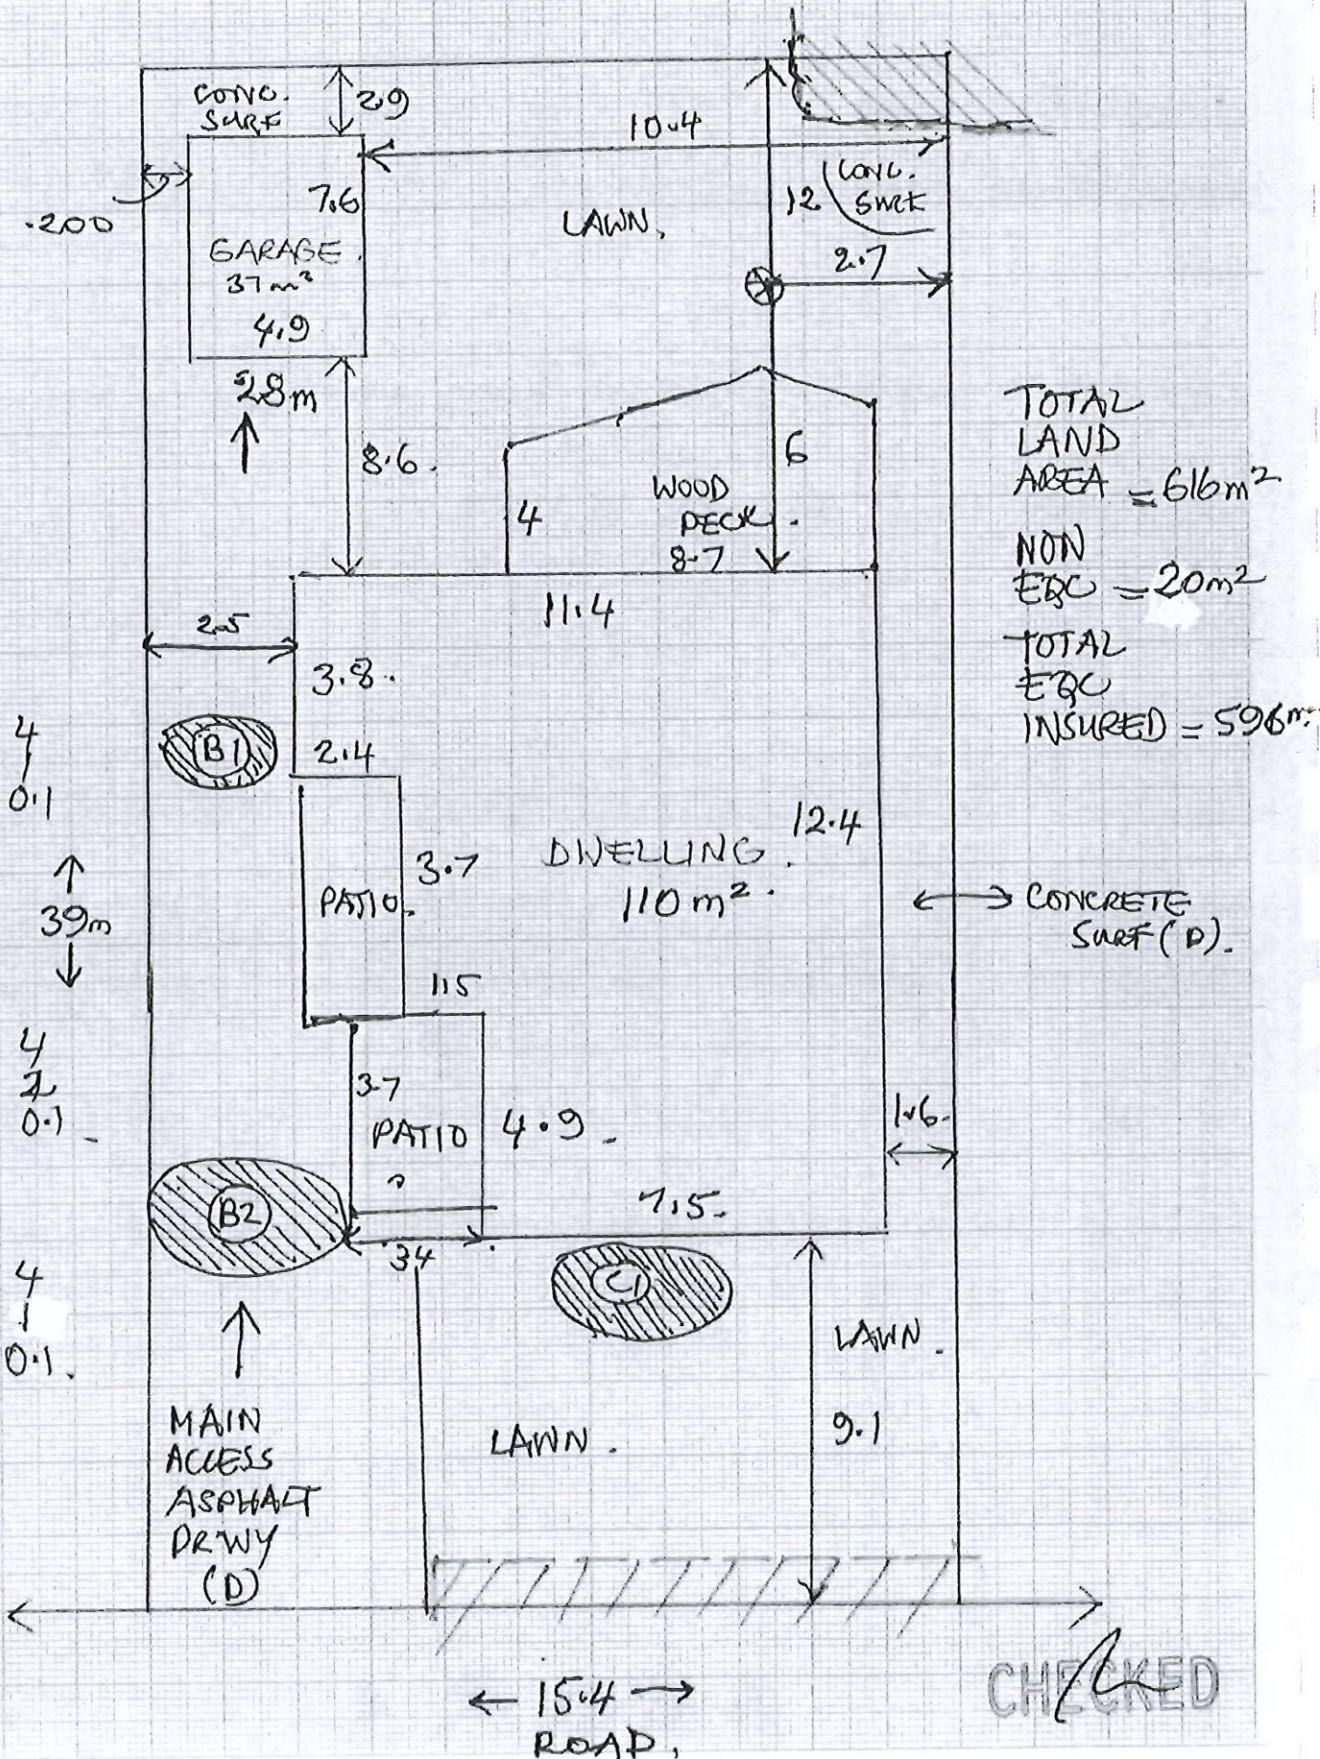 CONC.
SURF
2.9
10.4
.200
7.6
GARAGE.
37m²
4.9
LAWN.
12
CONC.
SURF
2.7
28m
8.6.
6
WOOD
DECK.
4
8.7
TOTAL
LAND
AREA = 616m²
NON
EQC = 20m²
TOTAL
EQC
INSURED = 596m²
11.4
2.5
3.8.
4
1
0.1
B1
2.4
12.4
DWELLING.
110m².
3.7
PATIO.
39m
CONCRETE
SURF (D).
1.5
4
2
0.1.
3.7
PATIO
4.9.
1.6.
B2
7.5.
3.4
C1
4
1
0.1.
LAWN.
MAIN
ACCESS
ASPHALT
DRWY
(D)
LAWN.
9.1
15.4
ROAD.
CHECKED